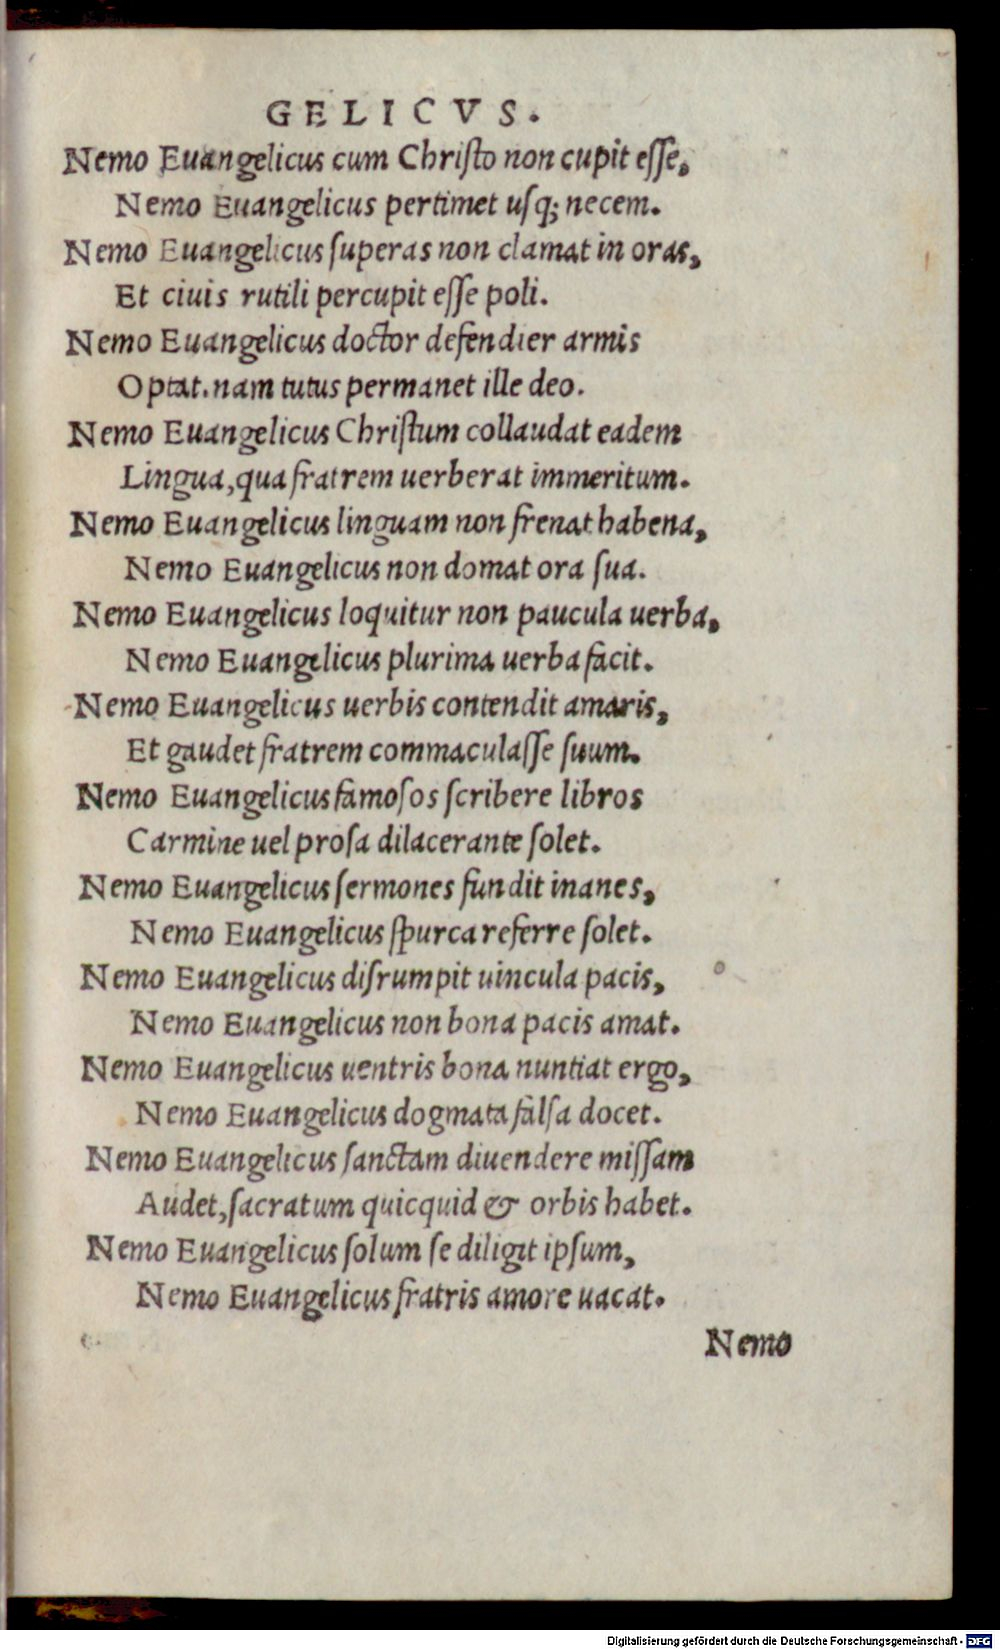 GELICVS.
Nemo Euangelicus cum Christo non cupit esse,
Nemo Euangelicus pertimet usq; necem.
Nemo Euangelicus superas non clamat in oras,
Et ciuis rutili percupit esse poli.
Nemo Euangelicus doctor defendier armis
Optat. nam tutus permanet ille deo.
Nemo Euangelicus Christum collaudat eadem
Lingua, qua fratrem uerberat immeritum.
Nemo Euangelicus linguam non frenat habena,
Nemo Euangelicus non domat ora sua.
Nemo Euangelicus loquitur non paucula uerba,
Nemo Euangelicus plurima uerba facit.
Nemo Euangelicus uerbis contendit amaris,
Et gaudet fratrem commaculasse suum.
Nemo Euangelicus famosos scribere libros
Carmine uel prosa dilacerante solet.
Nemo Euangelicus sermones fundit inanes,
Nemo Euangelicus spurca referre solet.
Nemo Euangelicus disrumpit uincula pacis,
Nemo Euangelicus non bona pacis amat.
Nemo Euangelicus uentris bona nuntiat ergo,
Nemo Euangelicus dogmata falsa docet.
Nemo Euangelicus sanctam diuendere missam
Audet, sacratum quicquid & orbis habet.
Nemo Euangelicus solum se diligit ipsum,
Nemo Euangelicus fratris amore uacat.
Nemo
Digitalisierung gefördert durch die Deutsche Forschungsgemeinschaft - DFG